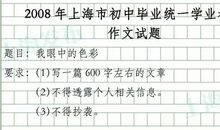 2008 年上海市初中毕业统一学业
作文试题
题目：我眼中的色彩
要求：(1)写一篇 600 字左右的文章
(2)不得透露个人相关信息。
(3)不得抄袭。